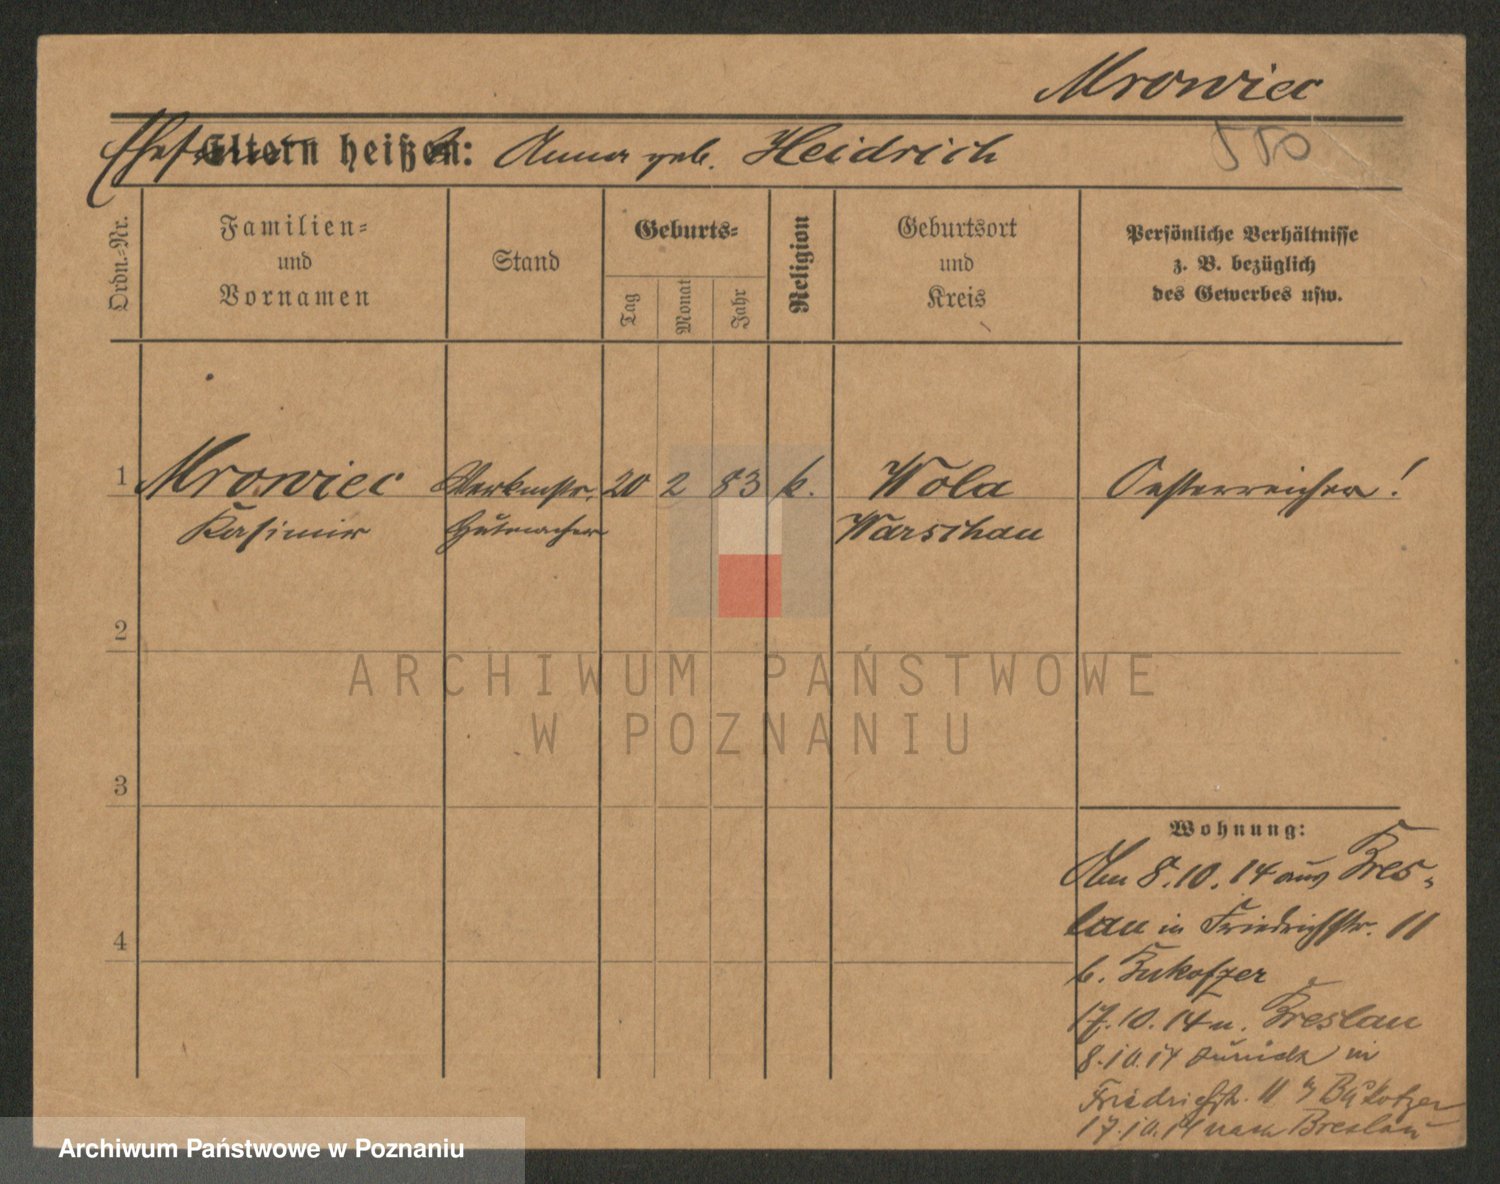 Mrowiec
550
Ehefr. Eltern heißen: Anna geb. Heidrich
Ordn.-Nr.
Familien-
und
Vornamen
Stand
Geburts-
Tag
Monat
Jahr
Religion
Geburtsort
und
Kreis
Persönliche Verhältnisse
z. B. bezüglich
des Gewerbes usw.
1 Mrowiec Werkmstr. 20 2 83 k. Wola Oesterreicher!
Kasimir Hutmacher Warschau
2
3
4
Wohnung:
Am 8.10.14 aus Bres-
lau in Friedrichstr. 11
b. Bukofzer
17.10.14 n. Breslau
8.10.14 zurück in
Friedrichstr. 11 b/ Bukofzer
17.10.14 nach Breslau
ARCHIWUM PAŃSTWOWE
W POZNANIU
Archiwum Państwowe w Poznaniu